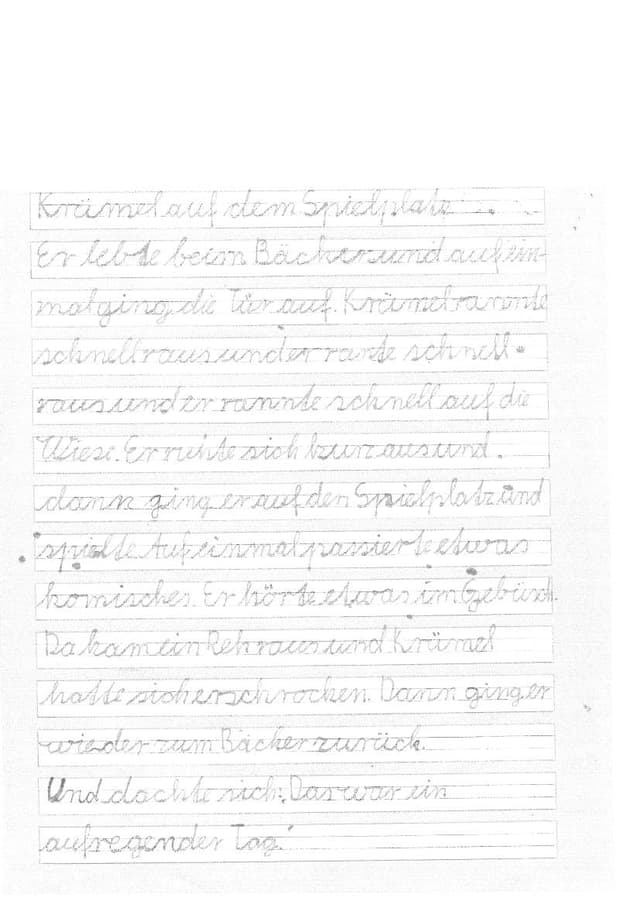 Krümel auf dem Spielplatz
Er lebte beim Bäcker und auf ein-
mal ging die Tür auf. Krümel rannte
schnell raus und er rante schnell
raus und er rannte schnell auf die
Wiese. Er ruhte sich kurz aus und
dann ging er auf den Spielplatz und
spielte Auf einmal passierte etwas
komisches. Er hörte etwas im Gebüsch.
Da kam ein Reh raus und Krümel
hatte sich erschrocken. Dann ging er
wieder zum Bäcker zurück.
Und dachte sich: Das war ein
aufregender Tag!